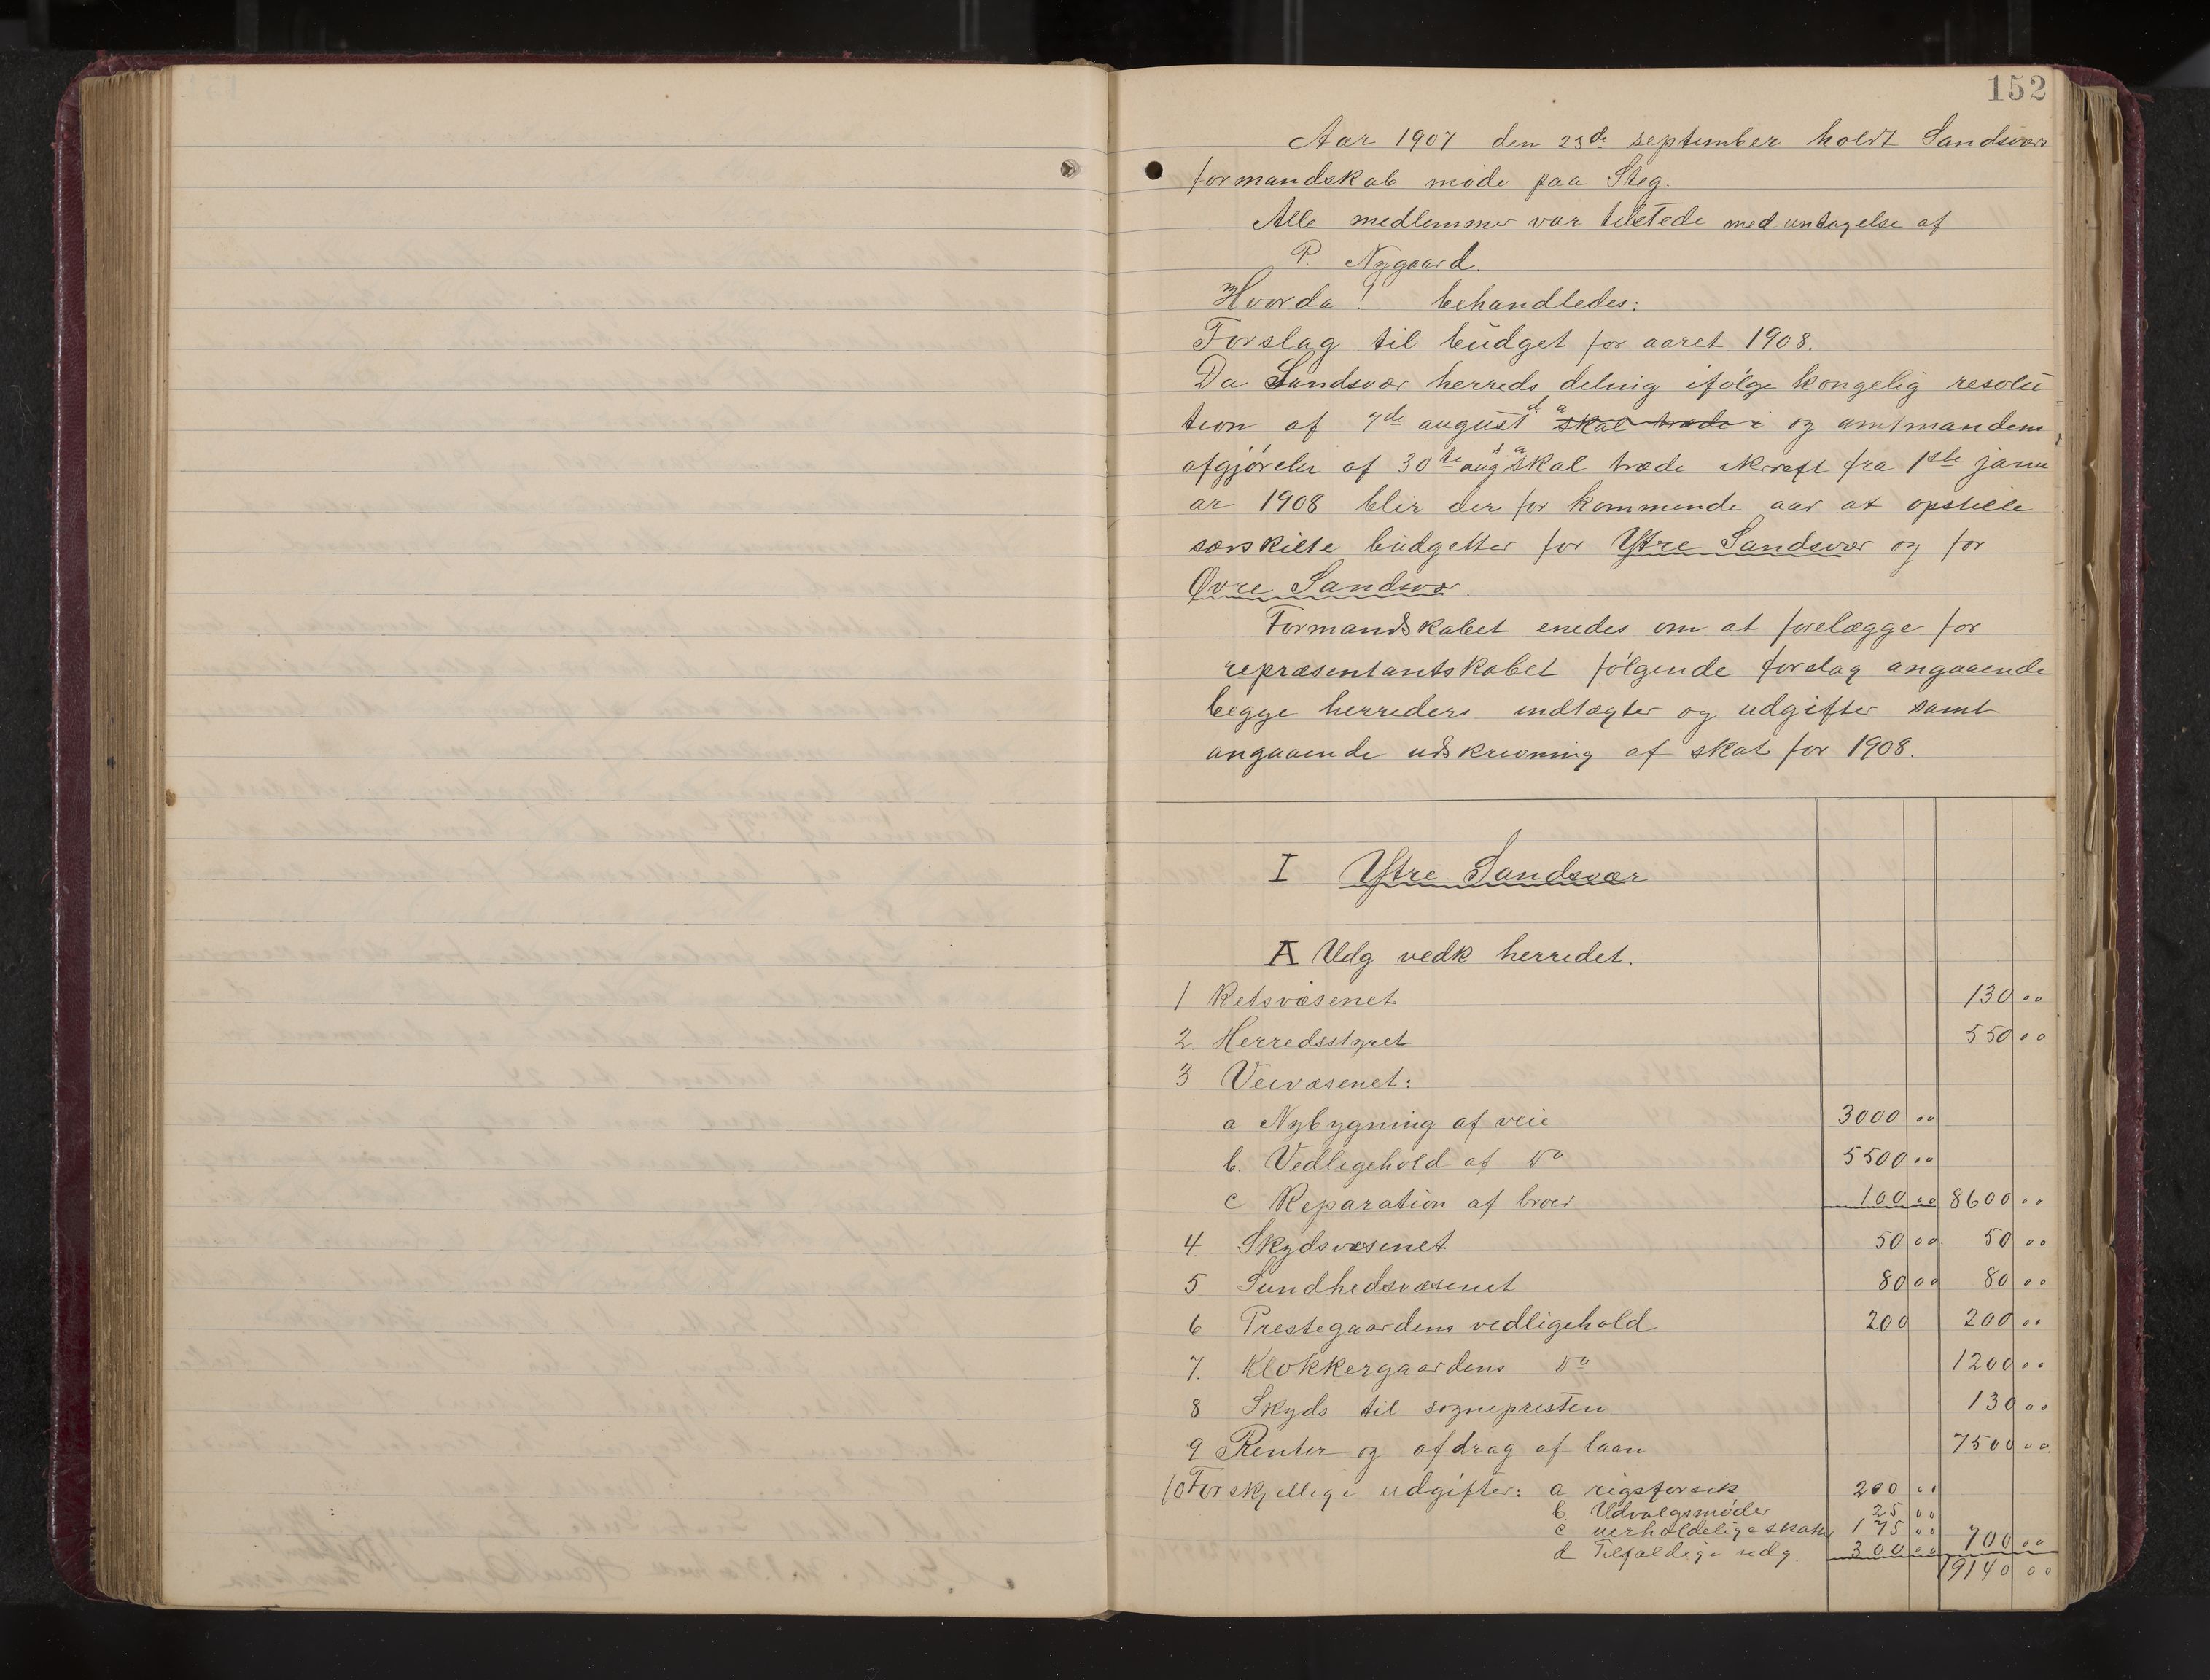 152
Aar 1907 den 23de september holdt Sandsvær
formandskab møde paa Steg.
Alle medlemmer var tilstede med undtagelse af
P. Nygaard.
Hvorda! behandledes:
Forslag til budget for aaret 1908.
Da Sandsvær herreds deling ifølge kongelig resolu
tion af 7de august d. a. skal træde i og amtmandens
afgjørelse af 30te aug d. a. skal træde ikraft fra 1ste janu
ar 1908 blir der for kommende aar at opstille
særskilte budgetter for Ytre Sandsvær og for
Øvre Sandsvær.
Formandskabet enedes om at forelægge for
repræsentantskabet følgende forslag angaaende
begge herreders indtægter og udgifter samt
angaaende udskrivning af skat for 1908.
I Ytre Sandsvær
A Udg vedk herredet.
1 Retsvæsenet 130 00
2. Herredsstyret 550 00
3 Veivæsenet:
a Nybygning af veie 3000 00
b. Vedligehold af do 5500 00
c Reparation af broer 100 00 8600 00
4. Skydsvæsenet 50 00 50 00
5 Sundhedsvæsenet 80 00 80 00
6 Prestegaardens vedligehold 200 200 00
7. Klokkergaardens do 1200 00
8 Skyds til sognepresten 130 00
9 Renter og afdrag af laan 7500 00
10 Forskjellige udgifter: a rigsforsik 200 00
b. Udvalgsmøder 25 00
c uerholdelige skatter 175 00 700 00
d Tilfældige udg. 300 00
19140 00